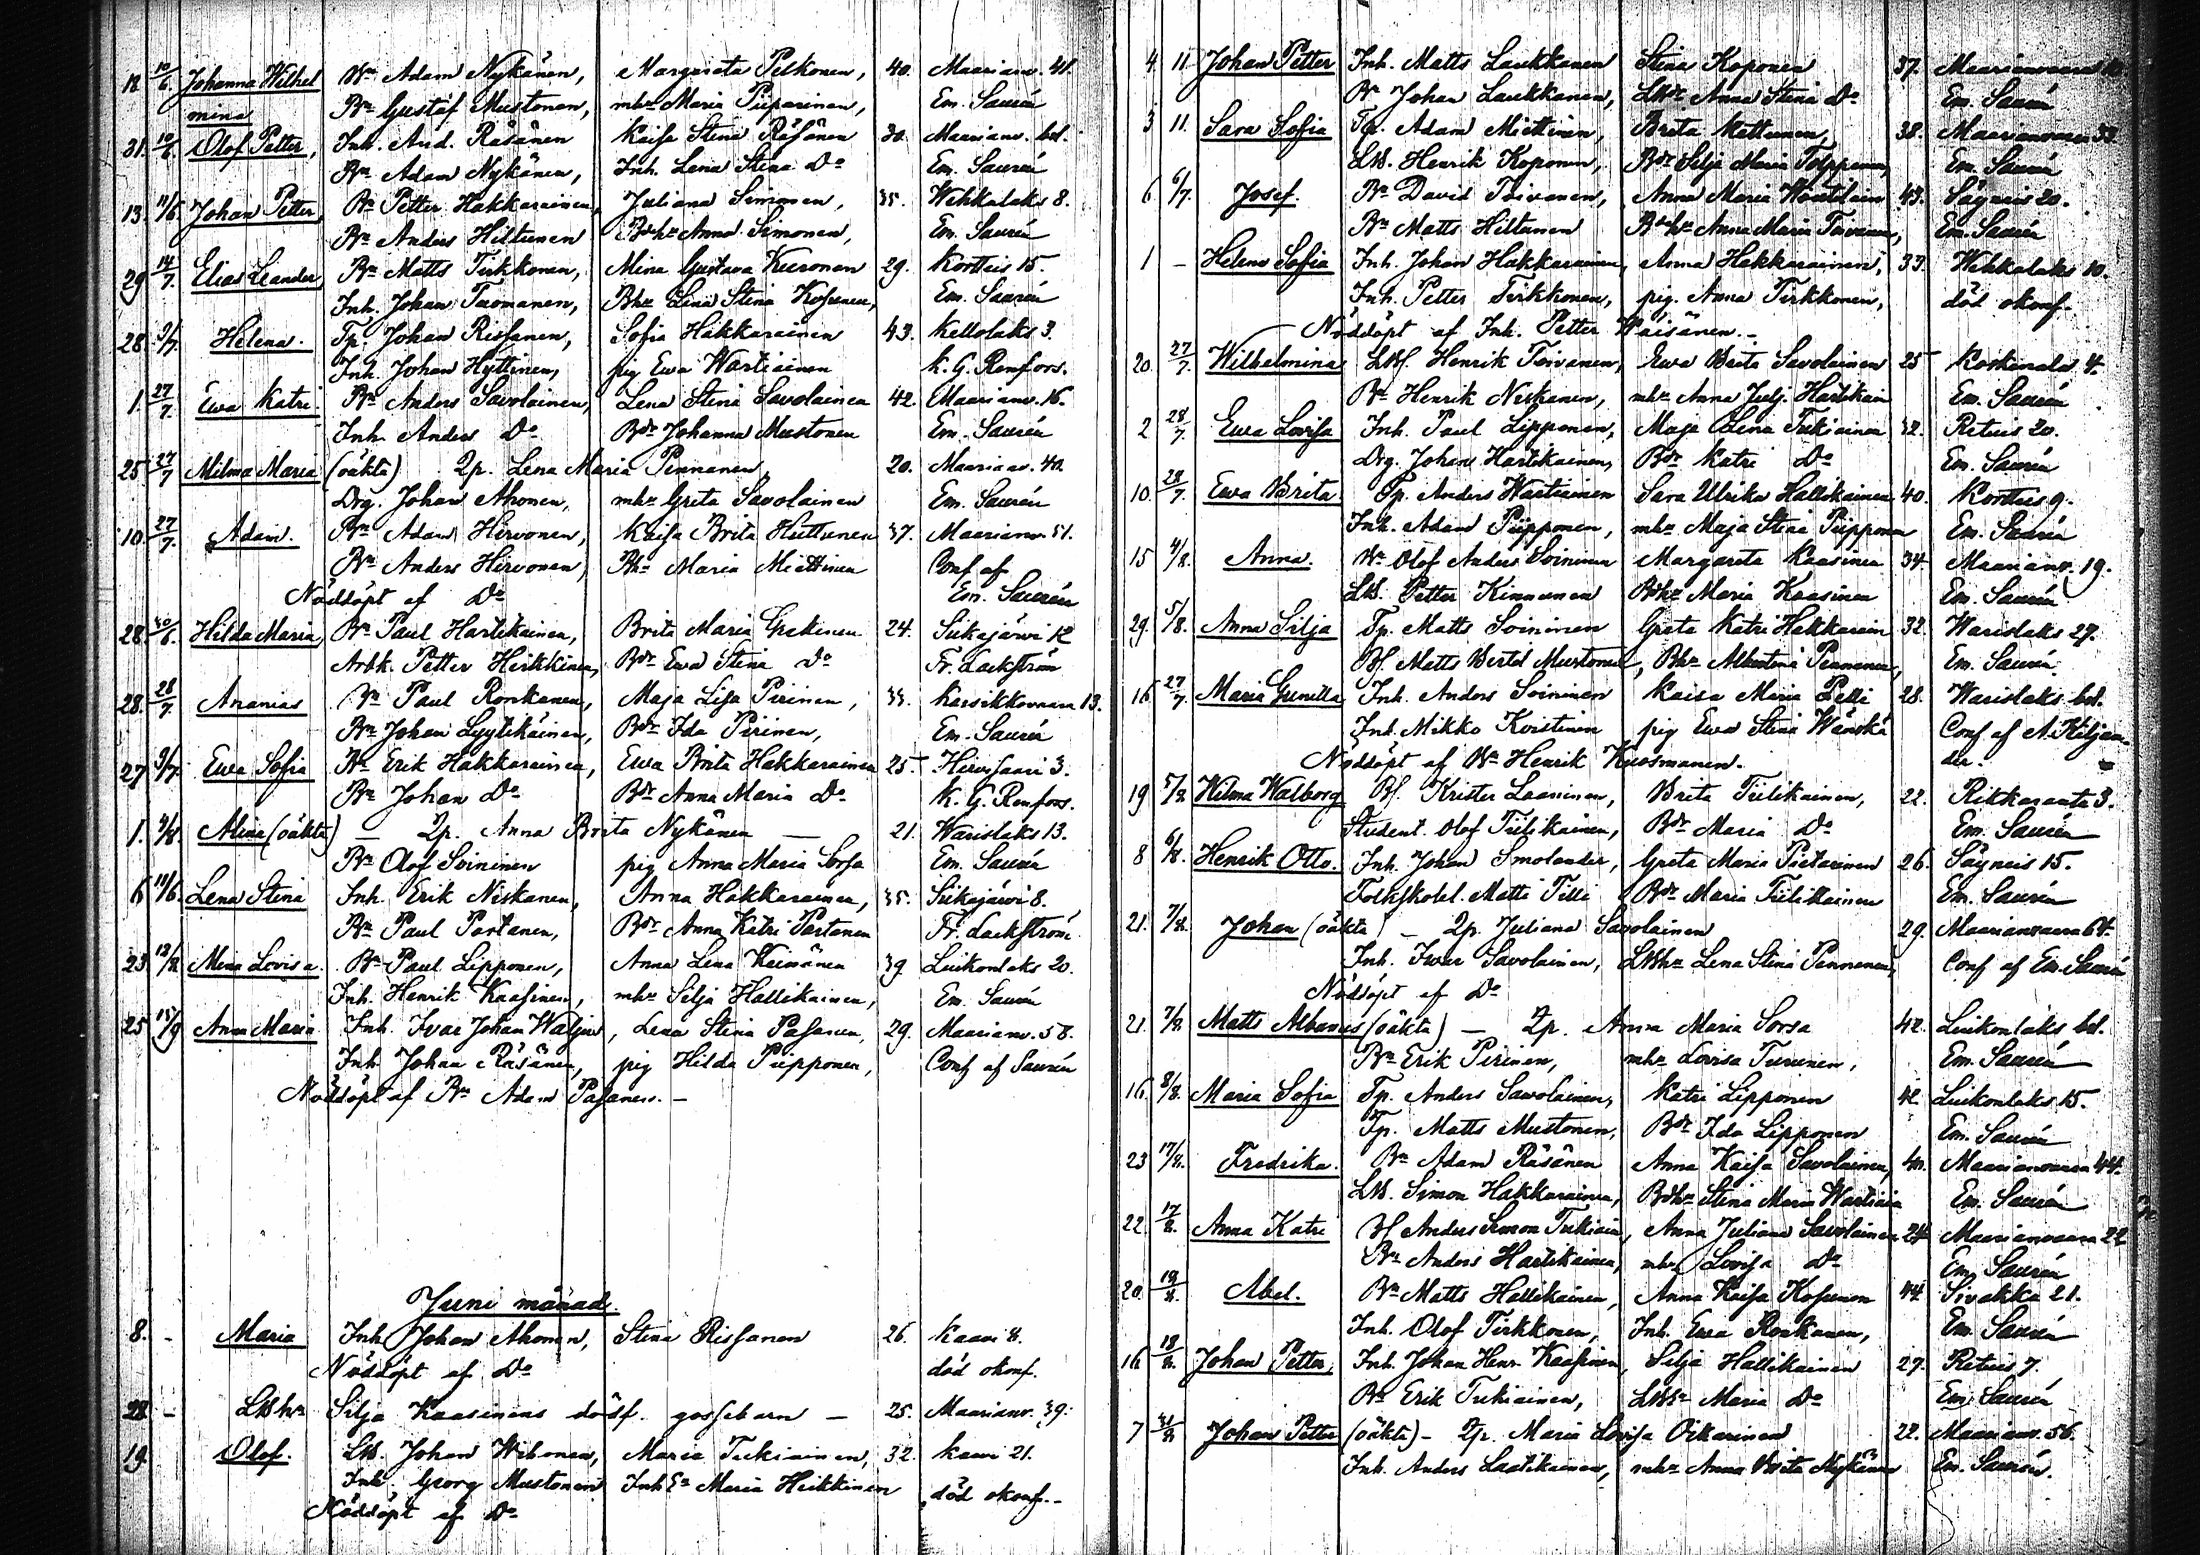 12. 10/6. Johanna Wilhel Bn Adam Nykänen, Margareta Pelkonen, 40. Maarianv. 41.
mina Bn Gustaf Mustonen, mhr Maria Piiparinen, Em. Saurén
31. 10/6. Olof Petter, Inh. And. Räsänen Kaisa Stina Räsänen 30. Maarianv. bol.
Bn Adam Nykänen, Inh. Lena Stina Do Em. Saurén
13. 11/6. Johan Petter, Bn Petter Hakkarainen, Juliana Simonen, 35. Wehkalaks 8.
Bn Anders Hiltunen Bdhr Anna Simonen, Em. Saurén
29. 14/7. Elias Leander Bn Matts Tirkkonen, Mina Gustava Kuronen 29. Kortteis 15.
Inh. Johan Tuomanen, Bhr Lena Stina Kosunen, Em. Saurén
28. 9/7. Helena. Tp. Johan Rissanen, Sofia Hakkarainen 43. Kellolaks 3.
Inh. Johan Hyttinen, pig Ewa Wartiainen K. G. Renfors.
1. 27/7. Ewa Katri Bn Anders Savolainen, Lena Stina Savolainen 42. Maarianv. 16.
Inh. Anders Do Bdr Johanna Mustonen Em. Saurén
25 27/7 Milma Maria (oäkta) 2p. Lena Maria Pennanen, 20. Maarianv. 40.
Drg. Johan Ahonen, mhr Greta Savolainen Em. Saurén
10. 27/7. Adam. Bn Adam Hirvonen, Kaisa Brita Huttunen 37. Maarianv. 51.
Bn Anders Hirvonen, Bhr Maria Miettinen Conf af
Nöddöpt af Do Em. Saurén
28. 30/6. Hilda Maria Bn Paul Hartikainen, Brita Maria Grekinen 24. Siikajärvi 12
Arbk. Petter Heikkinen, Bdr Ewa Stina Do Fr. Lackström
28. 28/7. Ananias Bn Paul Ronkanen, Maja Lisa Pirinen, 33. Karsikkovaara 13.
Bn Johan Lyytikäinen, Bdr Ida Pirinen, Em. Saurén
27 9/7. Ewa Sofia Bn Erik Hakkarainen, Ewa Brita Hakkarainen 25. Hirvisaari 3.
Bn Johan Do Bdr Anna Maria Do K. G. Renfors.
1. 4/8. Alina (oäkta) — 2p. Anna Brita Nykänen — 21. Warislaks 13.
Bn Olof Soininen pig Anna Maria Sorsa Em. Saurén
6 14/6. Lena Stina Inh. Erik Niskanen, Anna Hakkarainen, 35. Siikajärvi 8.
Bn Paul Partanen, Bdr Anna Katri Partanen Fr. Lackström.
23. 12/8. Mina Lovisa. Bn Paul Lipponen, Anna Lena Keinänen 39. Luikonlaks 20.
Inh. Henrik Kaasinen, mhr Silja Hallikainen, Em. Saurén
25 15/9 Anna Maria Inh. Ivar Johan Waljus, Lena Stina Pasanen, 29. Maarianv. 58.
Inh. Johan Räsänen, pig Hilda Piipponen, Conf af Saurén
Nöddöpt af Bn Adam Pasanen. —
Juni månad.
8. - Maria Inh. Johan Ahonen, Stina Rissanen 26. Kaavi 8.
Nöddöpt af Do död okonf.
28. - LBhr Silja Kaasinens dödf. gossebarn — 25. Maarianv. 39.
19. Olof. LB. Johan Wihonen, Maria Tukiainen, 32. Kaavi 21.
Inh. Georg Mustonen Inh. Maria Heikkinen
Nöddöpt af Do död okonf.-
4. 11. Johan Petter Inh. Matts Laukkanen Stina Koponen 37. Maarianvaara
Bn Johan Laukkanen, LBdr Anna Stina Do Em. Saurén
3 11. Sara Sofia Tp. Adam Miettinen, Brita Mattinen, 38. Maarianvaara 53
LB. Henrik Koponen, Bdr Silja Maria Toppinen, Em. Saurén
6 6/7. Josef. Bn David Toivanen, Anna Maria Woutilain 43. Säyneis 20.
Bn Matts Hiltunen Bdhr Anna Maria Toivanen, Em. Saurén
1 - Helena Sofia Inh. Johan Hakkarainen, Anna Hakkarainen, 33. Wehkalaks 10.
Inh. Petter Tirkkonen, pig. Anna Tirkkonen, död okonf.
Nöddöpt af Inh. Petter Wäisänen. -
20. 27/7. Wilhelmina LBf. Henrik Toivanen, Ewa Brita Savolainen 25 Koskenala 4.
Bn Henrik Niskanen, mhr Anna Julj. Hartikain Em. Saurén
2 28/7. Ewa Lovisa Inh. Paul Lipponen, Maja Lena Tukiainen 32. Retuis 20.
Drg. Johan Hartikainen, Bdr Katri Do Em. Saurén
10. 28/7. Ewa Brita. Tp. Anders Wartiainen Sara Ulrika Hallikainen 40. Kortteis 9.
Inh. Adam Piipponen, mhr Maja Stina Piipponen Em. Saurén
15 4/8. Anna. Bn Olof Anders Soininen Margareta Kaasinen 34. Maarianv. 19.
LB. Petter Kinnunen Bdhr Maria Kaasinen Em. Saurén
29. 5/8. Anna Silja Tp. Matts Soininen Greta Katri Hakkarain 32. Warislaks 27.
Bf. Matts Bertel Mustonen, Bhr Albertina Pennanen, Em. Saurén
16 27/7. Maria Gunilla Inh. Anders Soininen Kaisa Maria Pelli 28. Warislaks bol.
Inh. Mikko Koistinen pig Ewa Stina Wänskä Conf af A. Kiljan-
Nöddöpt af Bn Henrik Kuosmanen. der.
19 5/8. Hilma Walborg Bf. Krister Laaninen, Brita Tiilikainen, 22. Rikkaranta 3.
Student. Olof Tiilikainen, Bdr Maria Do Em. Saurén
8 6/8. Henrik Otto. Inh. Johan Smolander, Greta Maria Pietarinen 26. Säyneis 15.
Folkskolel. Matti Tilli Bdr Maria Tiilikainen Em. Saurén
21. 7/8. Johan (oäkta) — 2p. Juliana Savolainen 29. Maarianvaara 64.
Inh. Iwar Savolainen, LBhr Lena Stina Pennanen, Conf af Em. Saurén
Nöddöpt af Do
21. 7/8. Matts Albanus (oäkta) — 2p. Anna Maria Sorsa 42. Luikonlaks bol.
Bn Erik Pirinen, mhr Lovisa Turunen, Em. Saurén
16. 8/8. Maria Sofia Tp. Anders Savolainen, Katri Lipponen 42. Luikonlaks 15.
Tp. Matts Mustonen, Bdr Ida Lipponen Em. Saurén
23 17/8. Fredrika. Bn Adam Räsänen Anna Kaisa Savolainen, 40. Maarianvaara 44.
LB. Simon Hakkarainen, Bdhr Stina Maria Wartiain Em. Saurén
22. 17/8. Anna Katri Bf Anders Simon Tukiain, Anna Juliana Savolainen 24 Maarianvaara 22
Bn Anders Hartikainen, mhr Lovisa Do Em. Saurén
20. 19/8. Abel. Bn Matts Hallikainen, Anna Kaisa Kosunen 44. Sivakka 21.
Inh. Olof Tirkkonen, Inh. Ewa Ronkanen, Em. Saurén
16 18/8. Johan Petter, Inh. Johan Henr. Kaasinen, Silja Hallikainen 27. Retuis 7.
Bn Erik Tukiainen, Maria Do Em. Saurén
7 31/8 Johan Petter (oäkta) - 2p. Maria Lovisa Oikarinen 22. Maarianv. 56.
Inh. Anders Laatikainen, mhr Anna Brita Nykänen Em. Saurén.